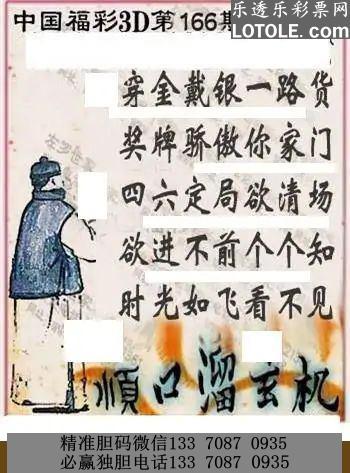 乐透乐彩票网
LOTOLE.COM
中国福彩3D第166期
穿金戴银一路货
奖牌骄傲你家门
四六定局欲清场
欲进不前个个知
时光如飞看不见
顺口溜玄机
精准胆码微信133 7087 0935
必赢独胆电话133 7087 0935